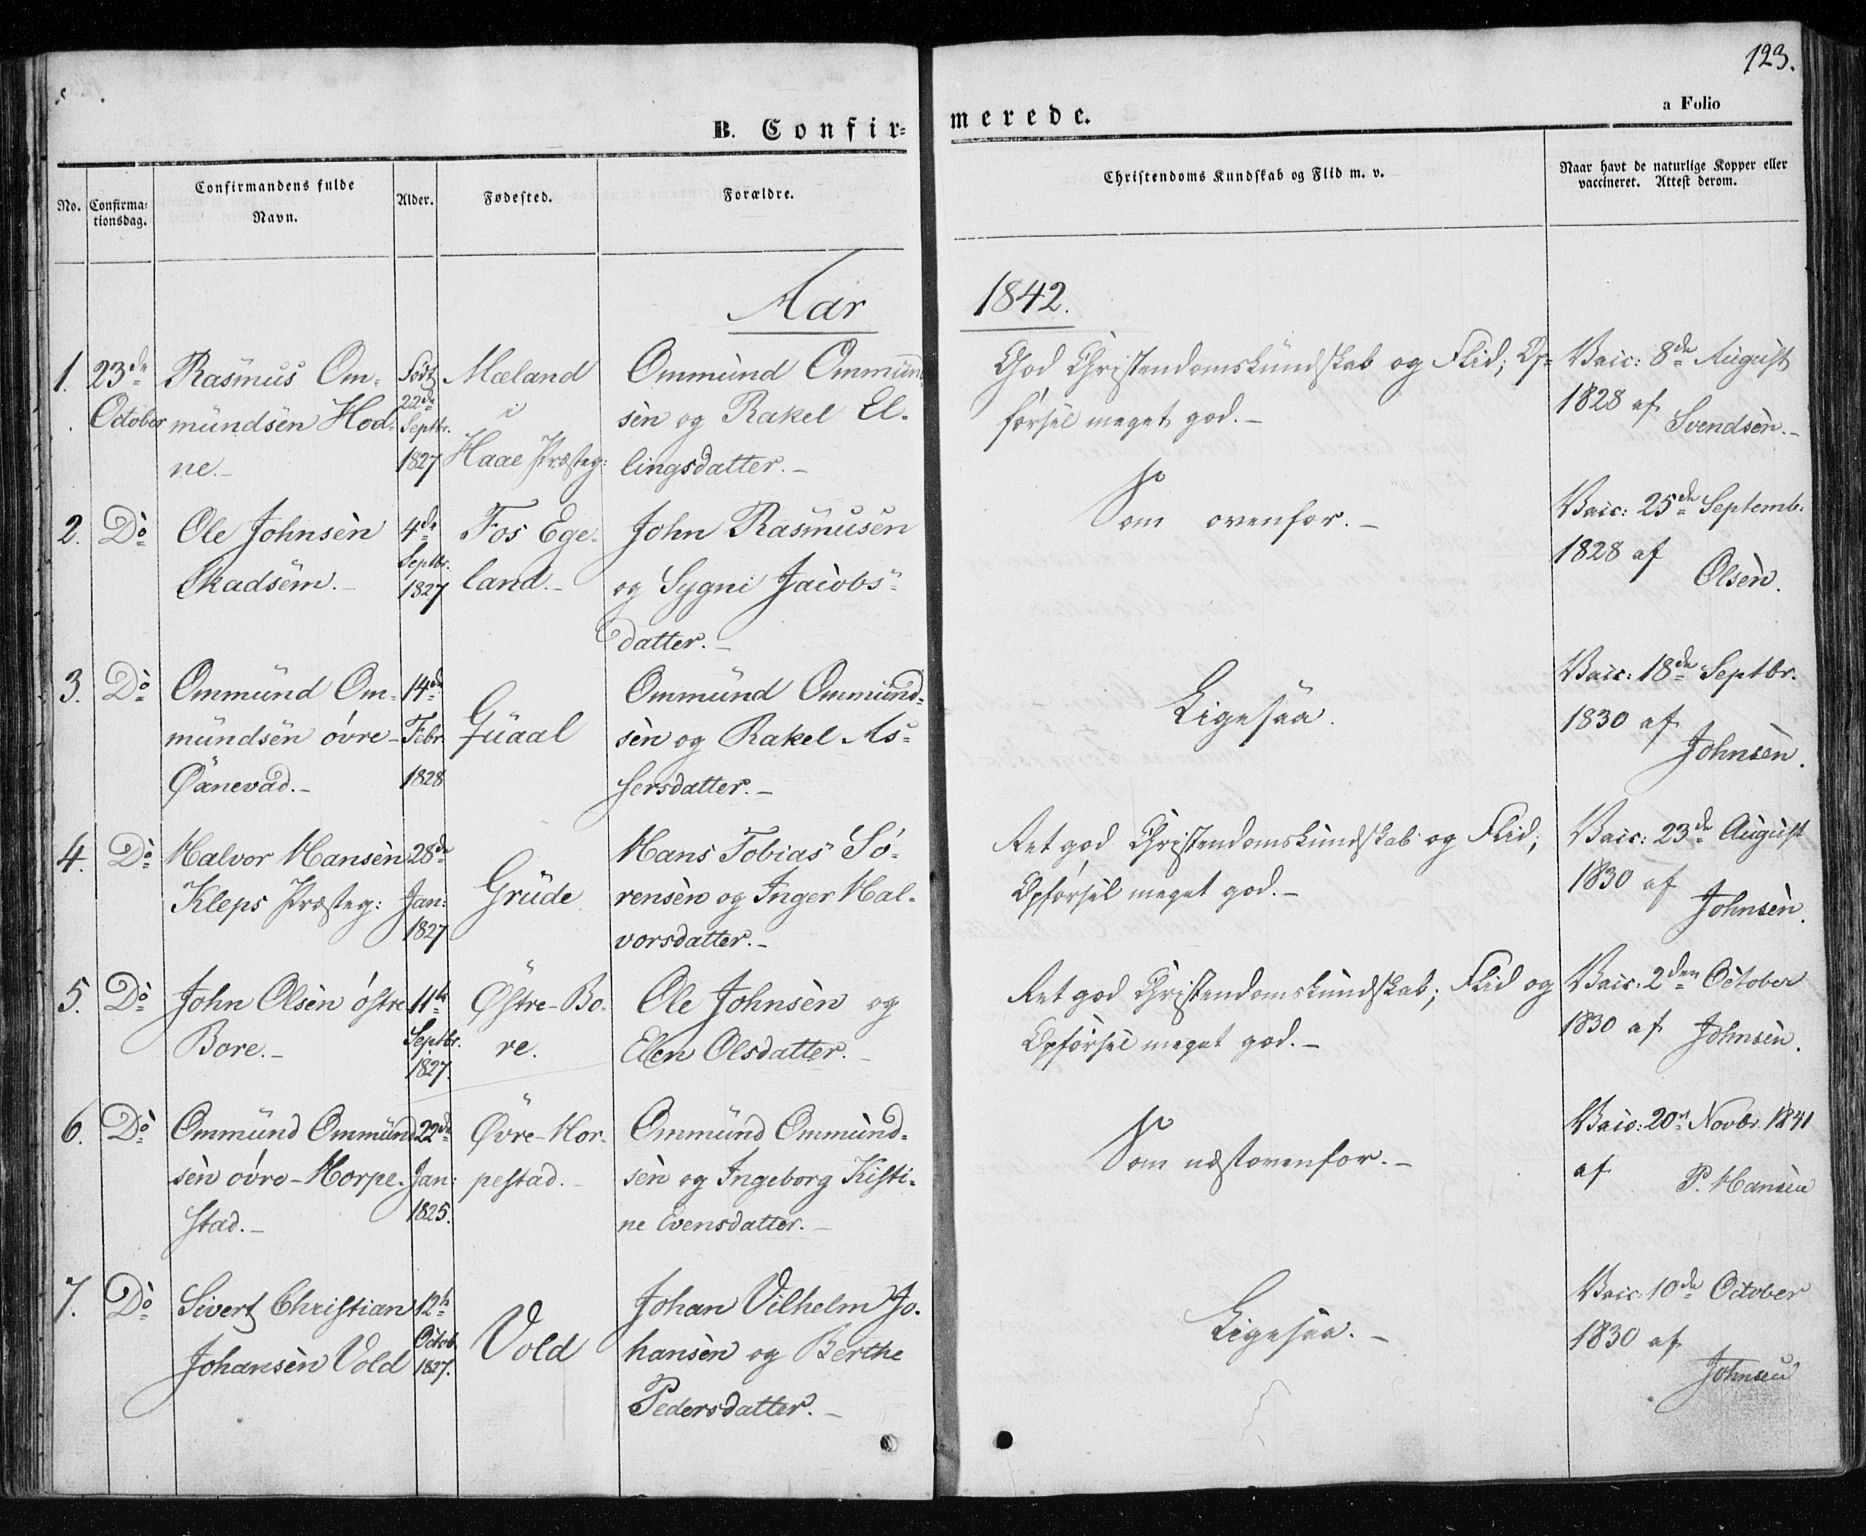 123.
a Folio
B. Confir=
merede.
No.
Confirma=
tionsdag.
Confirmandens fulde
Navn.
Alder.
Fødested.
Forældre.
Christendoms Kundskab og Flid m. v.
Naar havt de naturlige Kopper eller
vaccineret. Attest derom.
Aar
1842.
1.
23de
October
Rasmus Om-
mundsen Hod-
ne.-
Født
22de
Septbr.
1827
Mæland
i
Haae Præsteg:
Ommund Ommund
sen og Rakel El-
lingsdatter.-
God Christendomskundskab og Flid; Op-
førsel meget god.-
Vaic: 8de August
1828 af
Svendsen.-
2.
Do
Ole Johnsen
Skadsem.-
4de
Septbr.
1827
Fos Ege-
land.-
John Rasmusen
og Sygni Jacobs-
datter.-
Som ovenfor.-
Vaic: 25de Septemb.
1828 af
Olsen.
3.
Do
Ommund Om-
mundsen øvre-
Øxnevad.-
14de
Febr.
1828
Guaal
Ommund Ommund-
sen og Rakel As-
sersdatter.-
Ligesaa.
Vaic: 18de Septbr.
1830 af
Johnsen.
4.
Do
Halvor Hansen
Kleps Præsteg:
28de
Jan:
1827
Grude
Hans Tobias Sø-
rensen og Inger Hal-
vorsdatter.-
Ret god Christendomskundskab og Flid;
Opførsel meget god.-
Vaic: 23de August
1830 af
Johnsen.
5.
Do
John Olsen østre
Bore.-
11te
Septbr.
1827.
Østre-Bo-
re.
Ole Johnsen og
Elen Olsdatter.-
Ret god Christendomskundskab; Flid og
Opførsel meget god.-
Vaic. 2den October
1830 af Johnsen.
6.
Do
Ommund Ommund
sen øvre-Horpe-
stad.-
22de
Jan:
1825.
Øvre-Hor-
pestad.-
Ommund Ommund-
sen og Ingeborg Kisti-
ne Evensdatter.-
Som næstovenfor.-
Vaic: 20n Novbr. 1841
af
P. Hansen
7.
Do
Sivert Christian
Johansen Vold
12te
Octob.
1827.
Vold
Johan Vilhelm Jo-
hansen og Berthe
Pedersdatter.-
Ligesaa.-
Vaic: 10de October
1830 af
Johnsen